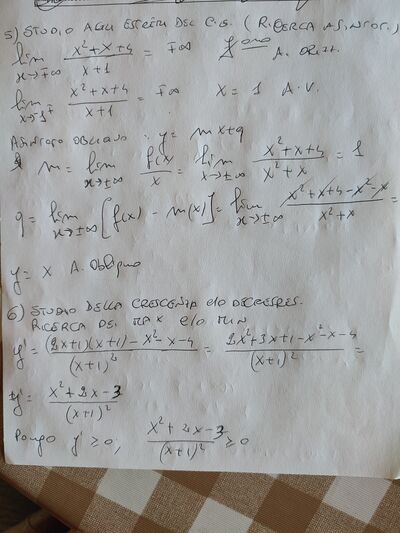 5) STUDIO AGLI ESTREMI DEL C.E. (RICERCA ASINTOT.)
lim x→∓∞ x²+x+4 / x+1 = ∓∞ A. ORIZZ.
lim x→-1∓ x²+x+4 / x+1 = ∓∞ X = 1 A.V.
ASINTOTO OBLIQUO : y = mx+q
m = lim x→±∞ f(x) / x = lim x→±∞ x²+x+4 / x²+x = 1
q = lim x→±∞ [f(x) - m(x)] = lim x→±∞ x²+x+4-x²-x / x²+x =
y = x A. OBLIQUO
6) STUDIO DELLA CRESCENZA E/O DECRESCE.
RICERCA DEI MAX E/O MIN
y' = (2x+1)(x+1) - x² - x - 4 / (x+1)² = 2x²+3x+1-x²-x-4 / (x+1)² =
y' = x²+2x-3 / (x+1)²
PONGO y' ≥ 0; x²+2x-3 / (x+1)² ≥ 0